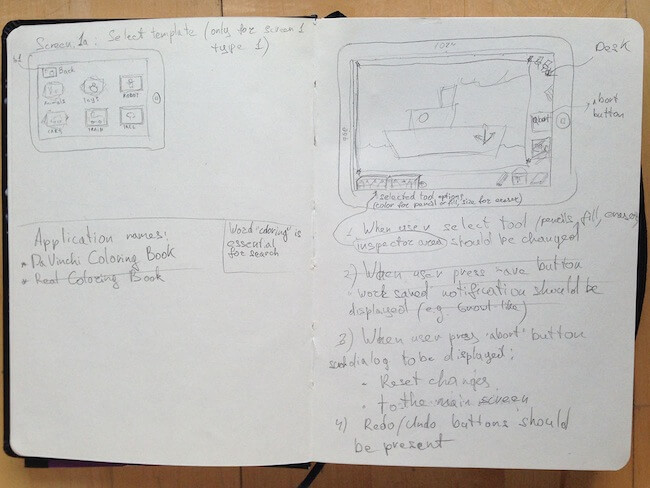 Screen 1a: Select template (only for screen 1
type 1)
Back
ANIMALS
TOYS
ROBOT
CARS
TRAIN
1024
Desk
abort
button
selected tool options
(color for pencil or fill, size for eraser)
Application names:
* DaVinchi Coloring Book
* Real Coloring Book
Word "coloring" is
essential
for search
1. When user select tool (pencils, fill, eraser)
(inspector area) should be changed
2) When user press save button
- work saved notification should be
displayed (e.g. Growl like)
3) When user press "abort" button
dialog to be displayed:
- Reset changes
- to the main screen
4) Redo/Undo buttons should
be present